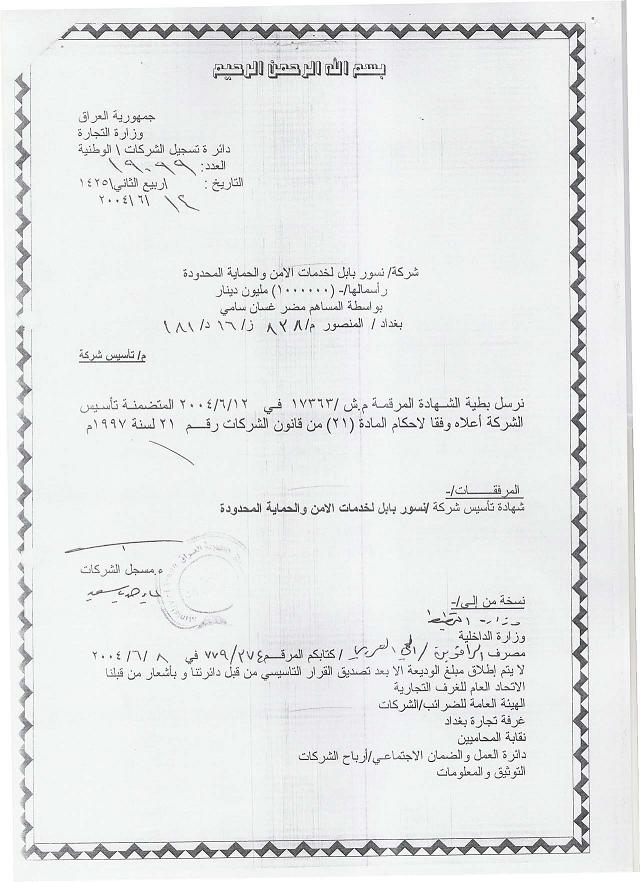 بسم الله الرحمن الرحيم
جمهورية العراق
وزارة التجارة
دائرة تسجيل الشركات \ الوطنية
العدد: ١٩٠٩٩
التاريخ : /ربيع الثاني/١٤٢٥
١٢ /٦/ ٢٠٠٤
شركة/ نسور بابل لخدمات الامن والحماية المحدودة
رأسمالها/- (١٠٠٠٠٠٠) مليون دينار
بواسطة المساهم مضر غسان سامي
بغداد / المنصور م/ ٨٣٨ ز/ ١٦ د/ ١٨١
م/ تأسيس شركة
نرسل بطية الشهادة المرقمة م.ش /١٧٣٦٣ في ٢٠٠٤/٦/١٢ المتضمنة تأسيس
الشركة أعلاه وفقا لاحكام المادة (٢١) من قانون الشركات رقم ٢١ لسنة ١٩٩٧م
المرفقات/-
شهادة تأسيس شركة /نسور بابل لخدمات الامن والحماية المحدودة
ء.مسجل الشركات
نسخة من إلى/-
وزارة
وزارة الداخلية
مصرف الرافدين / / كتابكم المرقم ٧٧٩/٢٧٤ في ٨ /٦ /٢٠٠٤
لا يتم إطلاق مبلغ الوديعة الا بعد تصديق القرار التاسيسي من قبل دائرتنا و بأشعار من قبلنا
الاتحاد العام للغرف التجارية
الهيئة العامة للضرائب/الشركات
غرفة تجارة بغداد
نقابة المحاميين
دائرة العمل والضمان الاجتماعي/أرباح الشركات
التوثيق والمعلومات